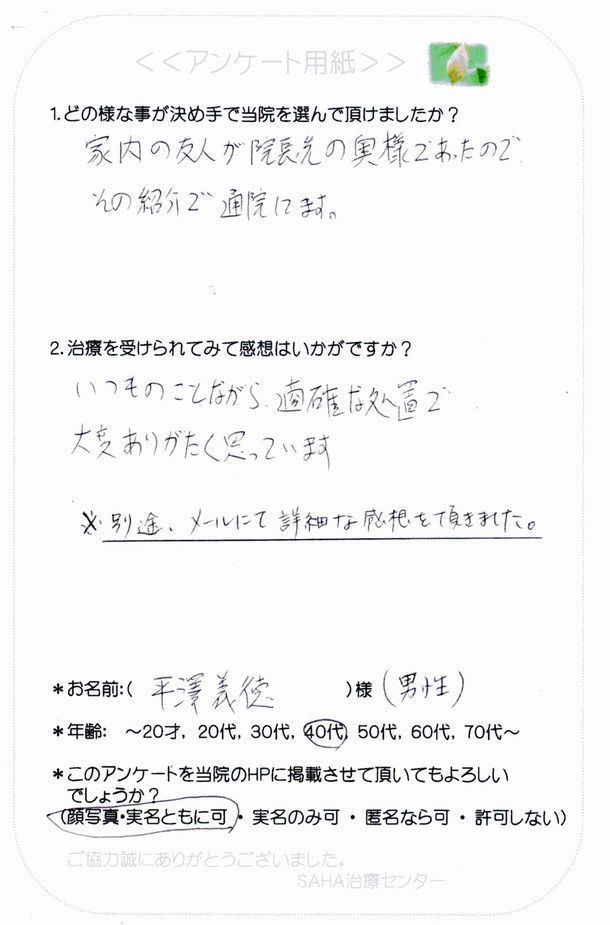 ＜＜アンケート用紙＞＞
1.どの様な事が決め手で当院を選んで頂けましたか？
家内の友人が院長先の奥様であったので
その紹介で通院してます。
2.治療を受けられてみて感想はいかがですか？
いつものことながら、適確な処置で
大変ありがたく思っています
※別途、メールにて詳細な感想を頂きました。
＊お名前:( 平澤義徳 )様(男性)
＊年齢: ～20才, 20代, 30代, 40代, 50代, 60代, 70代～
＊このアンケートを当院のHPに掲載させて頂いてもよろしい
でしょうか？
(顔写真・実名ともに可・実名のみ可・匿名なら可・許可しない)
ご協力誠にありがとうございました。
SAHA治療センター